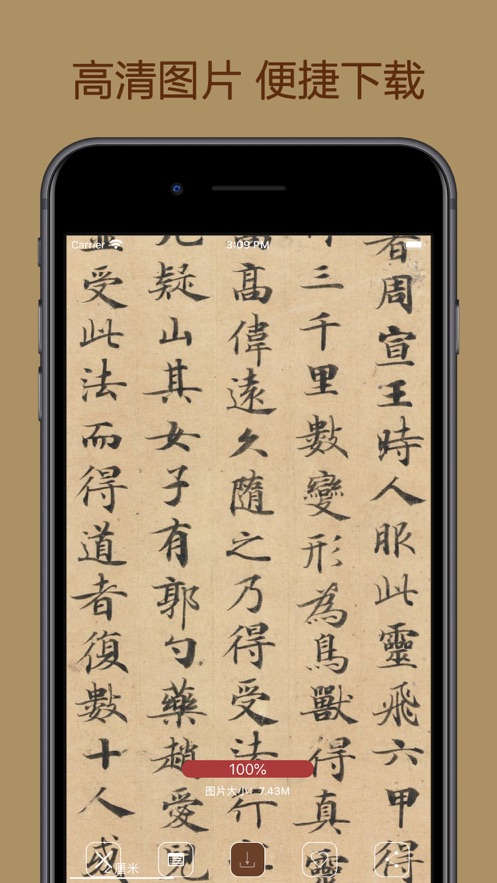 高清图片 便捷下载
Carrier 3:09 PM
者周宣王時人服此靈飛六甲得
三千里數變形為鳥獸得真靈
高偉遠久隨之乃得受法行
疑山其女子有郭勺藥趙愛兒
並受此法而得道者復數十人或
100%
图片大小：7.43M
2 厘米